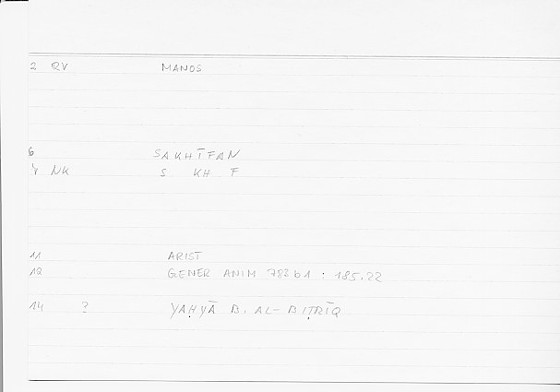 2 QV MANOS
6 SAKHĪFAN
NK S KH F
11 ARIST
12 GENER ANIM 782b1 : 185.22
14 ? YAḤYĀ B. AL-BIṬRĪQ